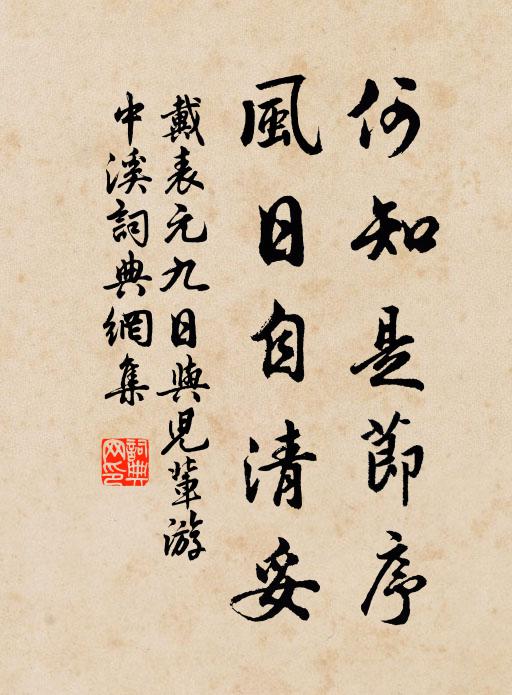 何知是節序
風日自清妥
戴表元九日與児輩游
中溪詞典網集
詞典
网印